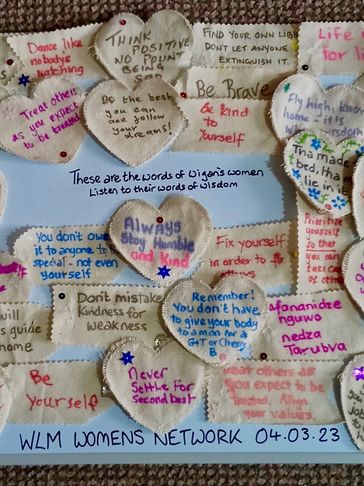 Dance like
nobodys
watching
THINK
POSITIVE
NO POINT
BEING
SAD
FIND YOUR OWN LIGHT
DON'T LET ANYONE
EXTINGUISH IT.
Life
for
Treat others
as you expect
to be treated
Do the best
you can and
follow
your dreams!
Be Brave
Be kind
to
Yourself
Fly high, know
home - it is
Tha made
bed, tha
lie in it
These are the words of Wigan's women
Listen to their words of wisdom
You don't owe
it to anyone to
special - not even
yourself
ALWAYS
Stay Humble
and kind
Fix yourself
in order to fix
others
Prioritise
yourself
so that
you can
take care
of others
will
guide
home
Don't mistake
Kindness for
weakness
Remember!
You don't have
to give your body
to a man for a
G+T or Cherry
B
Fananidze
nguwo
nedza
Tarubva
Be
Yourself
Never
Settle for
Second best
Treat others as
you expect to be
treated. Align
your values.
WLM WOMENS NETWORK 04.03.23